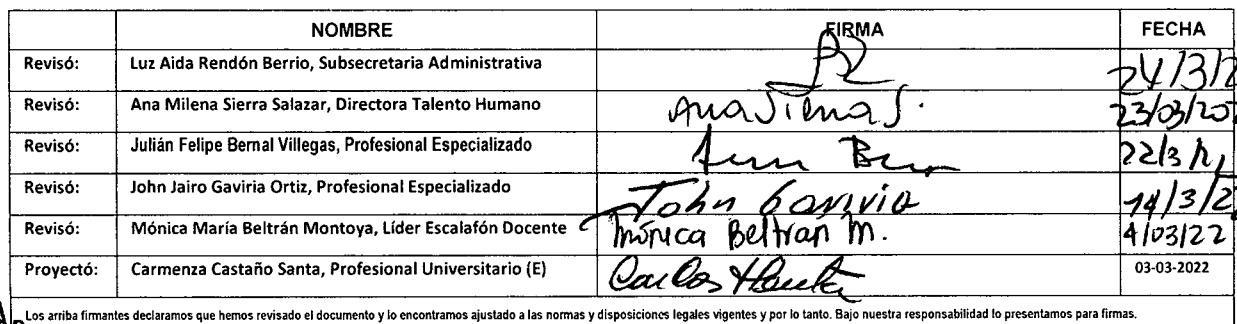 NOMBRE FIRMA FECHA
Revisó: Luz Aida Rendón Berrio, Subsecretaria Administrativa 24/3/2
Revisó: Ana Milena Sierra Salazar, Directora Talento Humano Ana Sierra S. 23/03/202
Revisó: Julián Felipe Bernal Villegas, Profesional Especializado 22/3/
Revisó: John Jairo Gaviria Ortiz, Profesional Especializado John Gaviria 14/3/2
Revisó: Mónica María Beltrán Montoya, Líder Escalafón Docente Mónica Beltrán M. 4/03/22
Proyectó: Carmenza Castaño Santa, Profesional Universitario (E) 03-03-2022
Los arriba firmantes declaramos que hemos revisado el documento y lo encontramos ajustado a las normas y disposiciones legales vigentes y por lo tanto. Bajo nuestra responsabilidad lo presentamos para firmas.